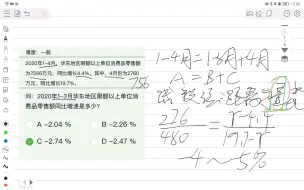 难度：一般
2020年1-4月，华东地区限额以上单位消费品零售额
为7566万元，同比增长4.4%。其中，4月份为2760
万元，同比增长19.7%。
756
问：2020年1-3月华东地区限额以上单位消
费品零售额同比增速是多少？
A -2.04 %
B -2.26 %
C -2.74 %
D -2.47 %
1-4月=1-3月+4月
A=B+C
276
480
r-4.4
19.7-r
-4~-5%